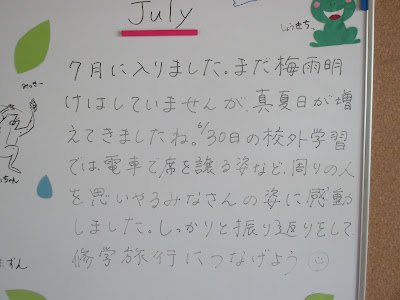 July
しょうきち
7月に入りました。まだ梅雨明
けはしていませんが、真夏日が増
えてきましたね。6/30日の校外学習
では、電車で席を譲る姿など、周りの人
を思いやるみなさんの姿に感動
しました。しっかりと振り返りをして
修学旅行につなげよう